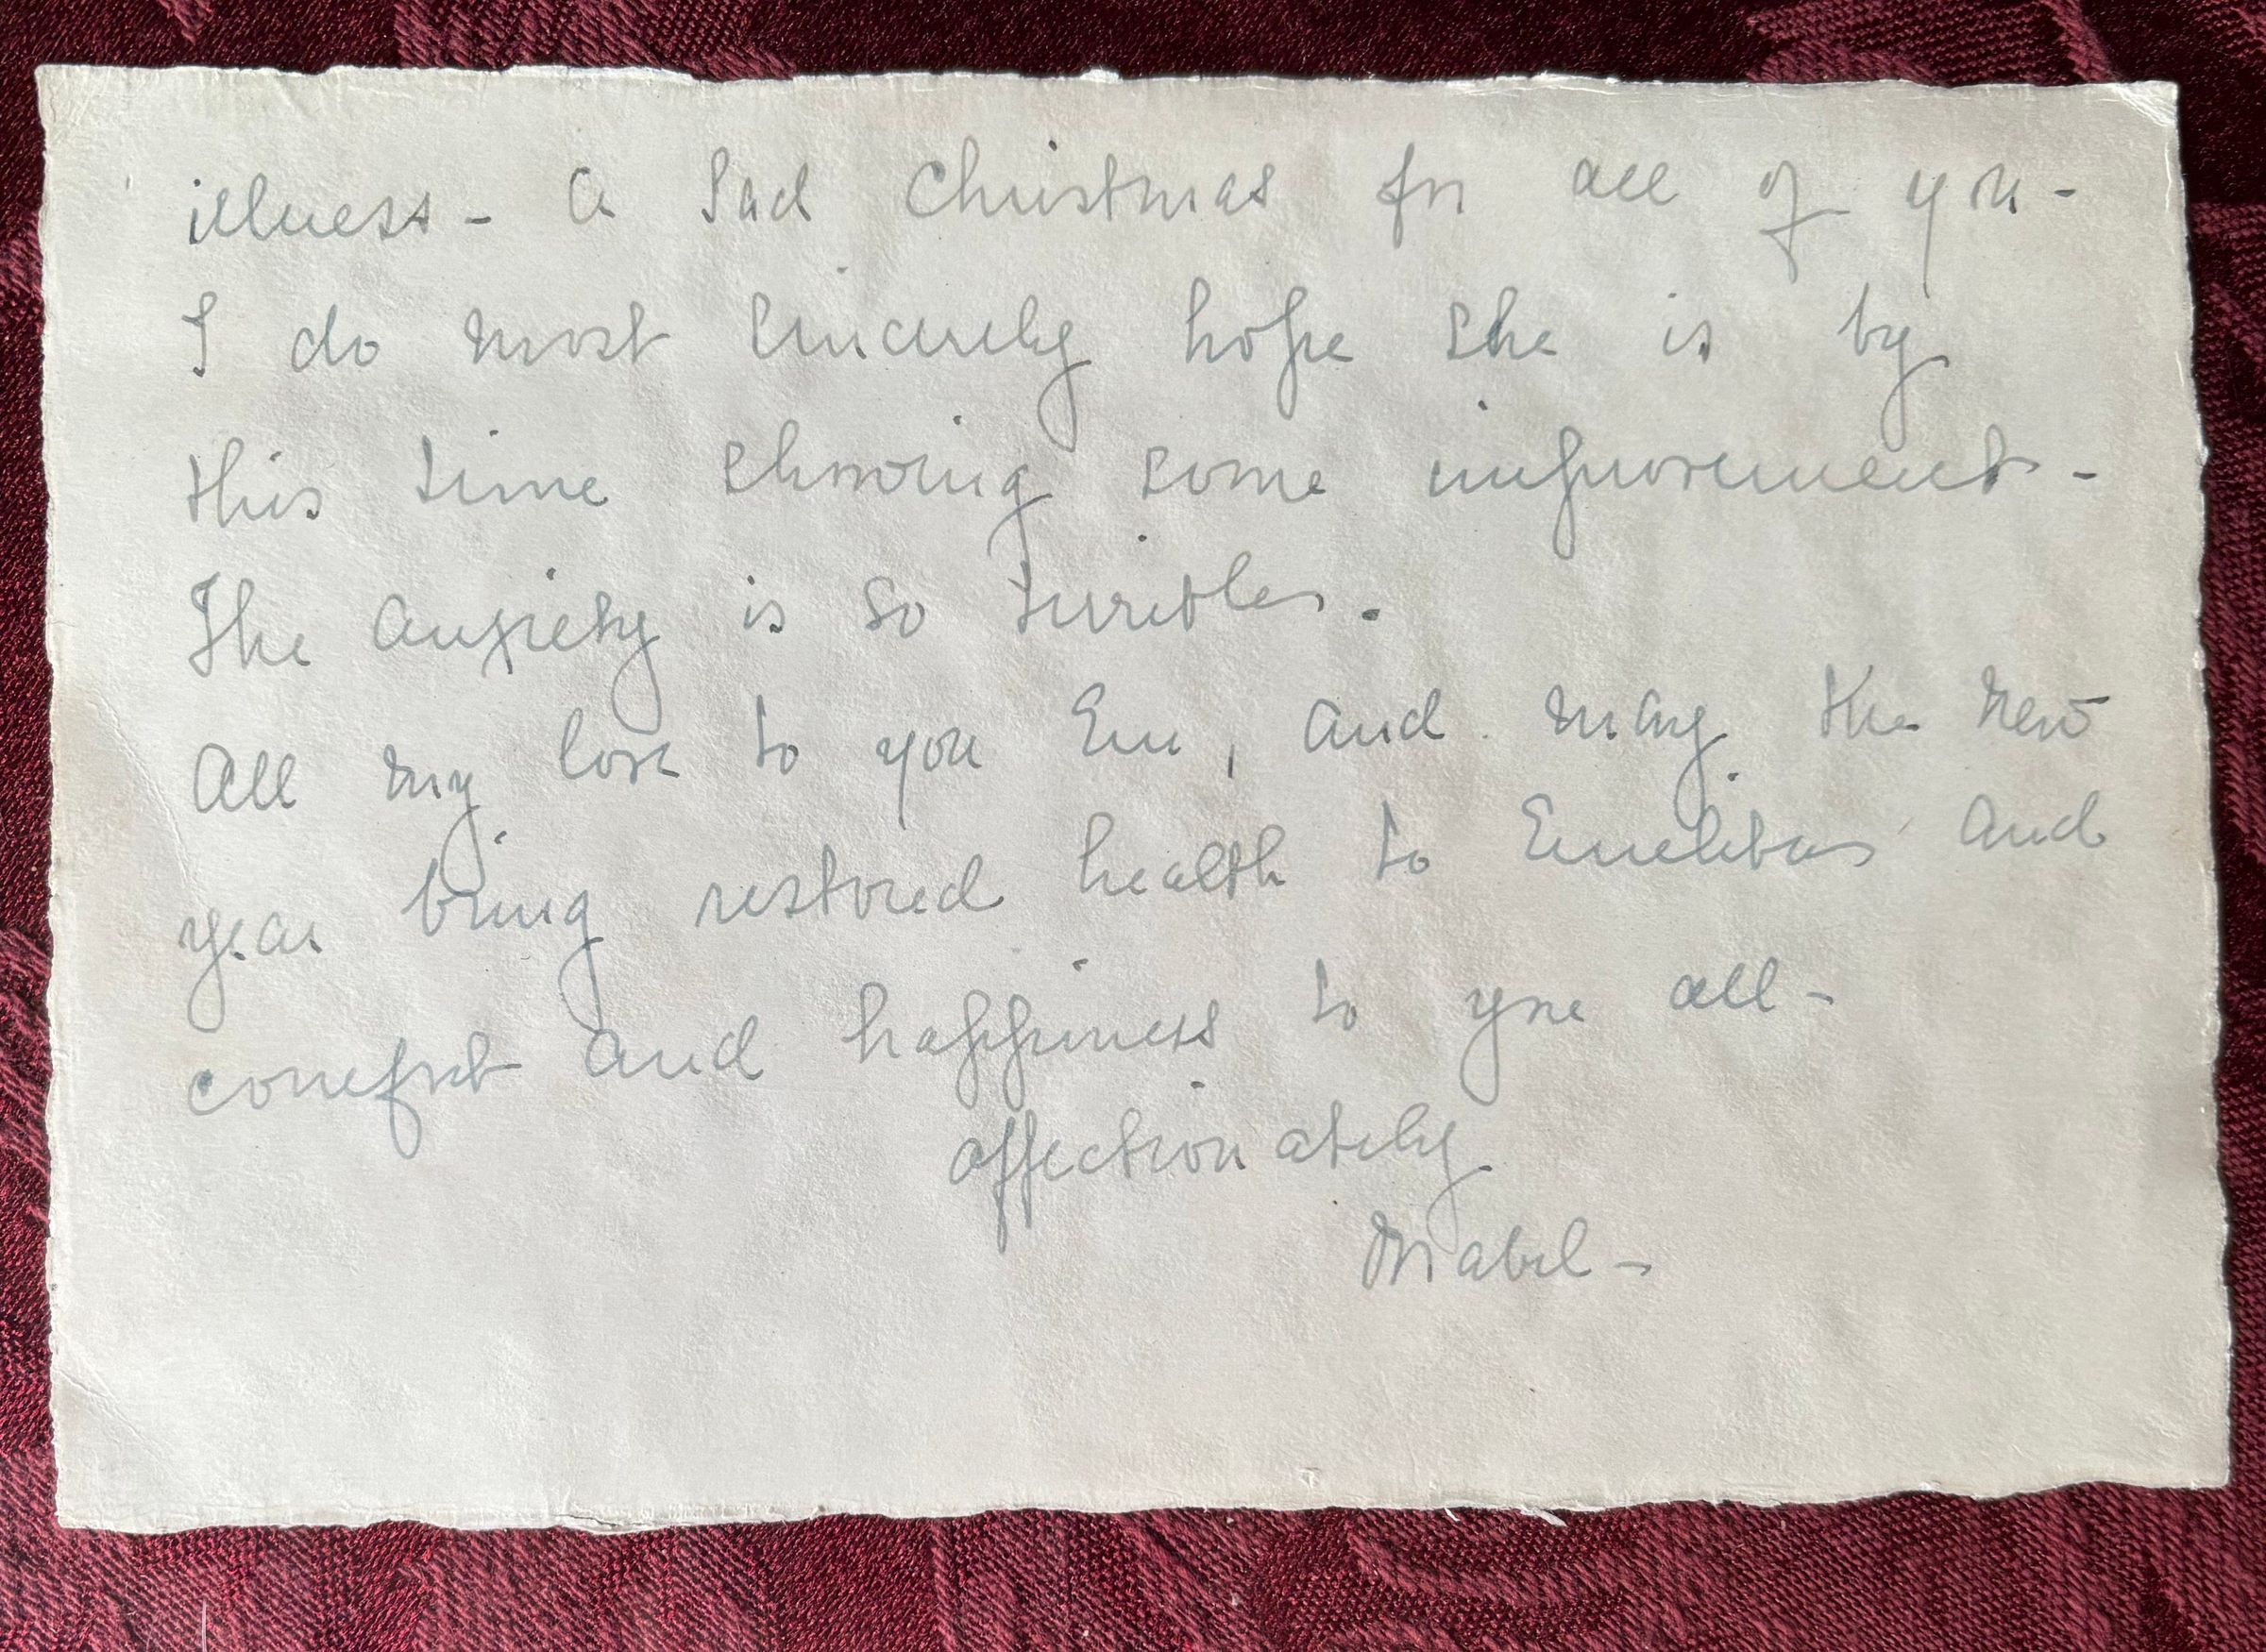 illness - a sad Christmas for all of you -
I do most sincerely hope she is by
this time showing some improvement -
The anxiety is so terrible.
All my love to you Em, and may the new
year bring restored health to and
comfort and happiness to you all -
affectionately
Mabel -